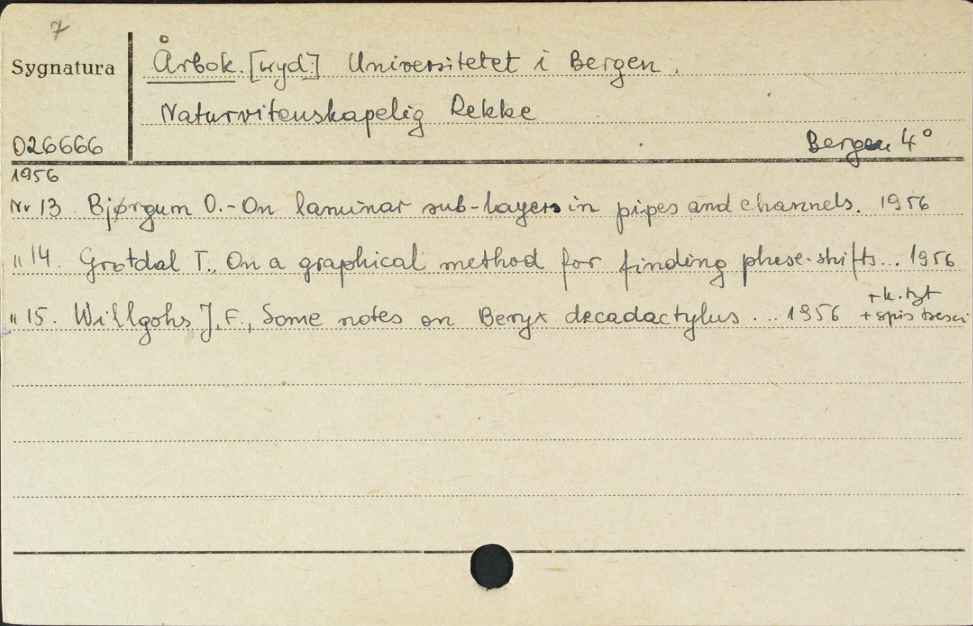 7
Sygnatura
Årbok. [wyd:] Universitetet i Bergen.
Naturvitenskapelig Rekke
026666
Bergen 4°
1956
Nr 13 Bjørgum O. - On laminar sub-layers in pipes and channels. 1956
" 14. Grotdal T., On a graphical method for finding phase-shifts... 1956
" 15. Willgohs J.F., Some notes on Beryx decadactylus. ... 1956 + k. tyt
+ spis treści